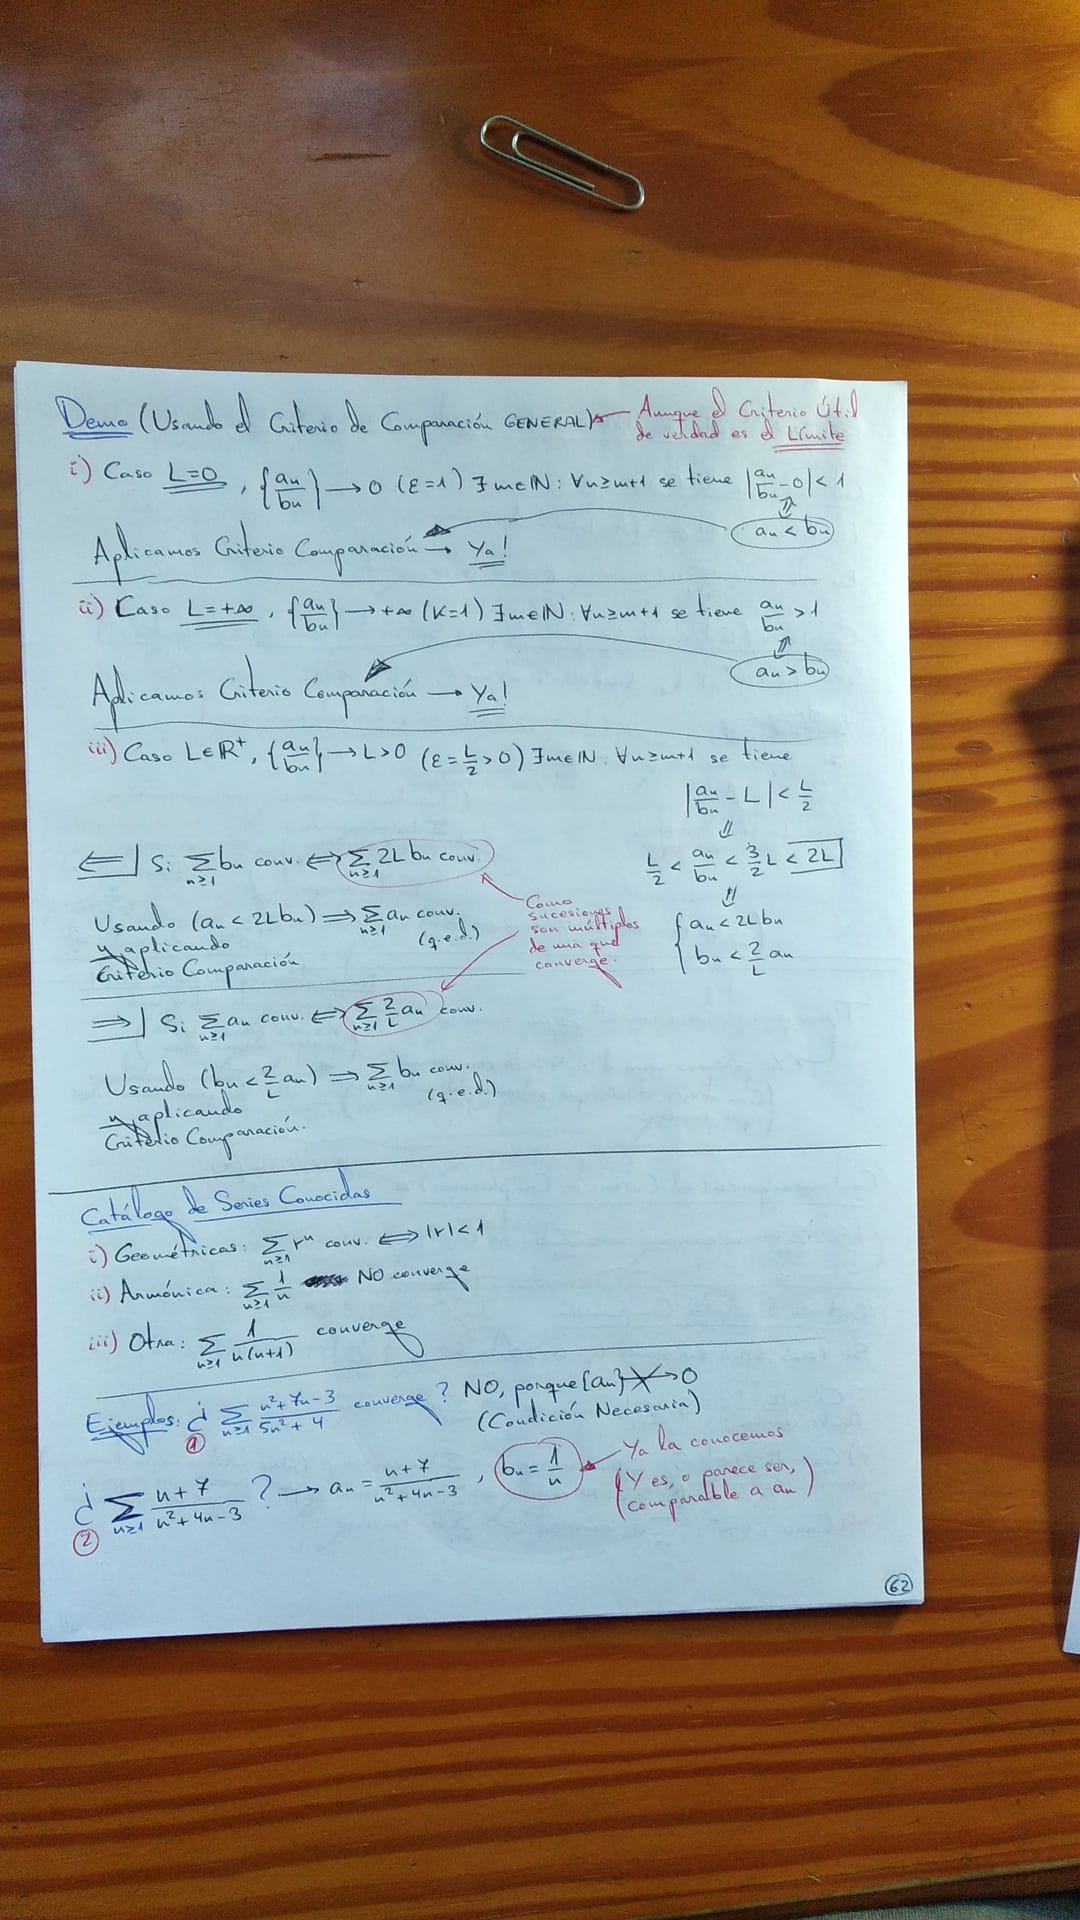 Demo (Usando el Criterio de Comparación GENERAL) ← Aunque el Criterio Útil
de verdad es el Límite
i) Caso L=0, {an/bn} → 0 (ε=1) ∃m∈ℕ: ∀n≥m+1 se tiene |an/bn - 0| < 1
⇕
an < bn
Aplicamos Criterio Comparación → Ya!
ii) Caso L=+∞, {an/bn} → +∞ (K=1) ∃m∈ℕ: ∀n≥m+1 se tiene an/bn > 1
⇕
an > bn
Aplicamos Criterio Comparación → Ya!
iii) Caso L∈ℝ⁺, {an/bn} → L>0 (ε=L/2>0) ∃m∈ℕ: ∀n≥m+1 se tiene
|an/bn - L| < L/2
⇓
L/2 < an/bn < 3/2 L < 2L
⇓
{ an < 2L bn
{ bn < 2/L an
⇐| Si Σn≥1 bn conv. ⇔ Σn≥1 2L bn conv.
Usando (an < 2L bn) ⇒ Σn≥1 an conv.
y aplicando (q.e.d.)
Criterio Comparación
Como
sucesiones
son múltiplos
de una que
converge.
⇒| Si Σn≥1 an conv. ⇔ Σn≥1 2/L an conv.
Usando (bn < 2/L an) ⇒ Σn≥1 bn conv.
y aplicando (q.e.d.)
Criterio Comparación.
Catálogo de Series Conocidas
i) Geométricas: Σn≥1 rⁿ conv. ⇔ |r| < 1
ii) Armónica: Σn≥1 1/n NO converge
iii) Otra: Σn≥1 1/n(n+1) converge
Ejemplos: ¿ Σn≥1 n²+7n-3/5n²+4 converge? NO, porque {an} ↛ 0
① (Condición Necesaria)
¿ Σn≥1 n+7/n²+4n-3 ? → an = n+7/n²+4n-3, bn = 1/n ← Ya la conocemos
② (Y es, o parece ser,
comparable a an)
62